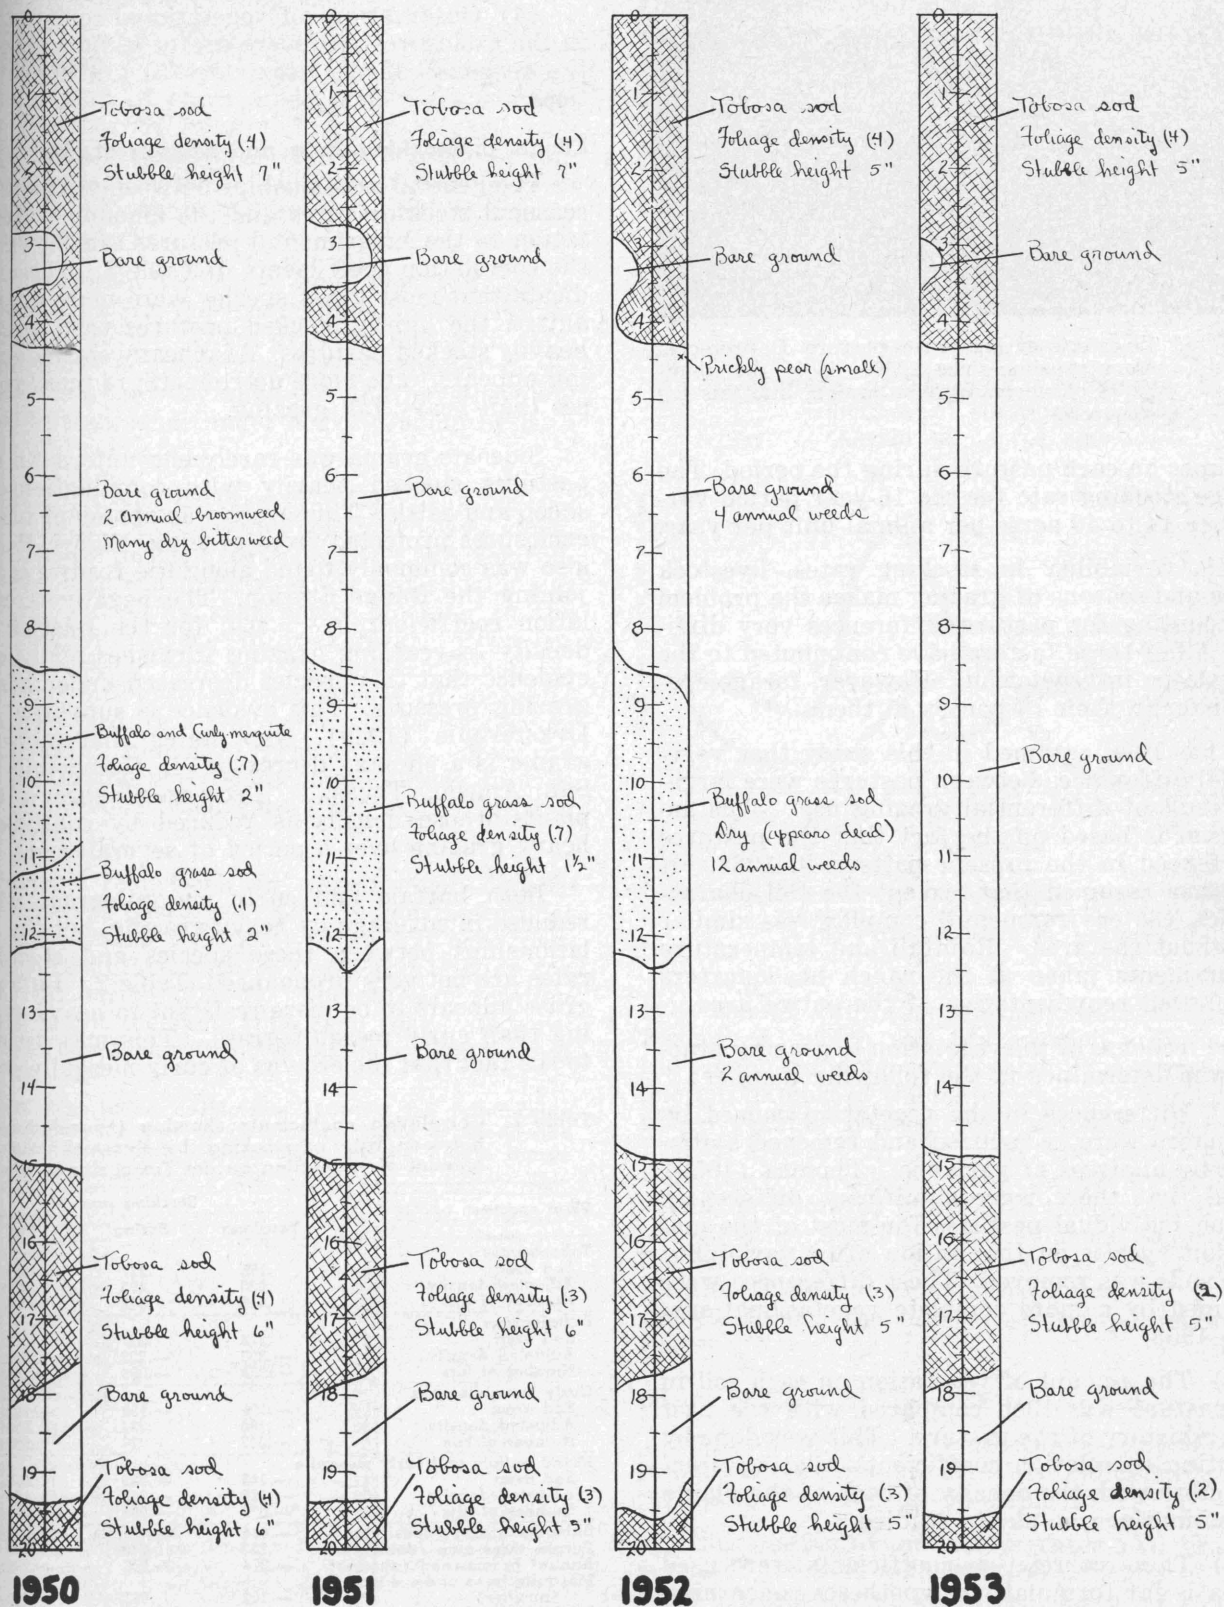 0
1
2
3
4
5
6
7
8
9
10
11
12
13
14
15
16
17
18
19
20
Tobosa sod
Foliage density (.4)
Stubble height 7"
Bare ground
Bare ground
2 annual broomweed
Many dry bitterweed
Buffalo and Curly-mesquite
Foliage density (.7)
Stubble height 2"
Buffalo grass sod
Foliage density (.1)
Stubble height 2"
Bare ground
Tobosa sod
Foliage density (.4)
Stubble height 6"
Bare ground
Tobosa sod
Foliage density (.4)
Stubble height 6"
1950
0
1
2
3
4
5
6
7
8
9
10
11
12
13
14
15
16
17
18
19
20
Tobosa sod
Foliage density (.4)
Stubble height 7"
Bare ground
Bare ground
Buffalo grass sod
Foliage density (.7)
Stubble height 1½"
Bare ground
Tobosa sod
Foliage density (.3)
Stubble height 6"
Bare ground
Tobosa sod
Foliage density (.3)
Stubble height 5"
1951
0
1
2
3
4
5
6
7
8
9
10
11
12
13
14
15
16
17
18
19
20
Tobosa sod
Foliage density (.4)
Stubble height 5"
Bare ground
Prickly pear (small)
Bare ground
4 annual weeds
Buffalo grass sod
Dry (appears dead)
12 annual weeds
Bare ground
2 annual weeds
Tobosa sod
Foliage density (.3)
Stubble height 5"
Bare ground
Tobosa sod
Foliage density (.3)
Stubble height 5"
1952
0
1
2
3
4
5
6
7
8
9
10
11
12
13
14
15
16
17
18
19
20
Tobosa sod
Foliage density (.4)
Stubble height 5"
Bare ground
Bare ground
Tobosa sod
Foliage density (.2)
Stubble height 5"
Bare ground
Tobosa sod
Foliage density (.2)
Stubble height 5"
1953